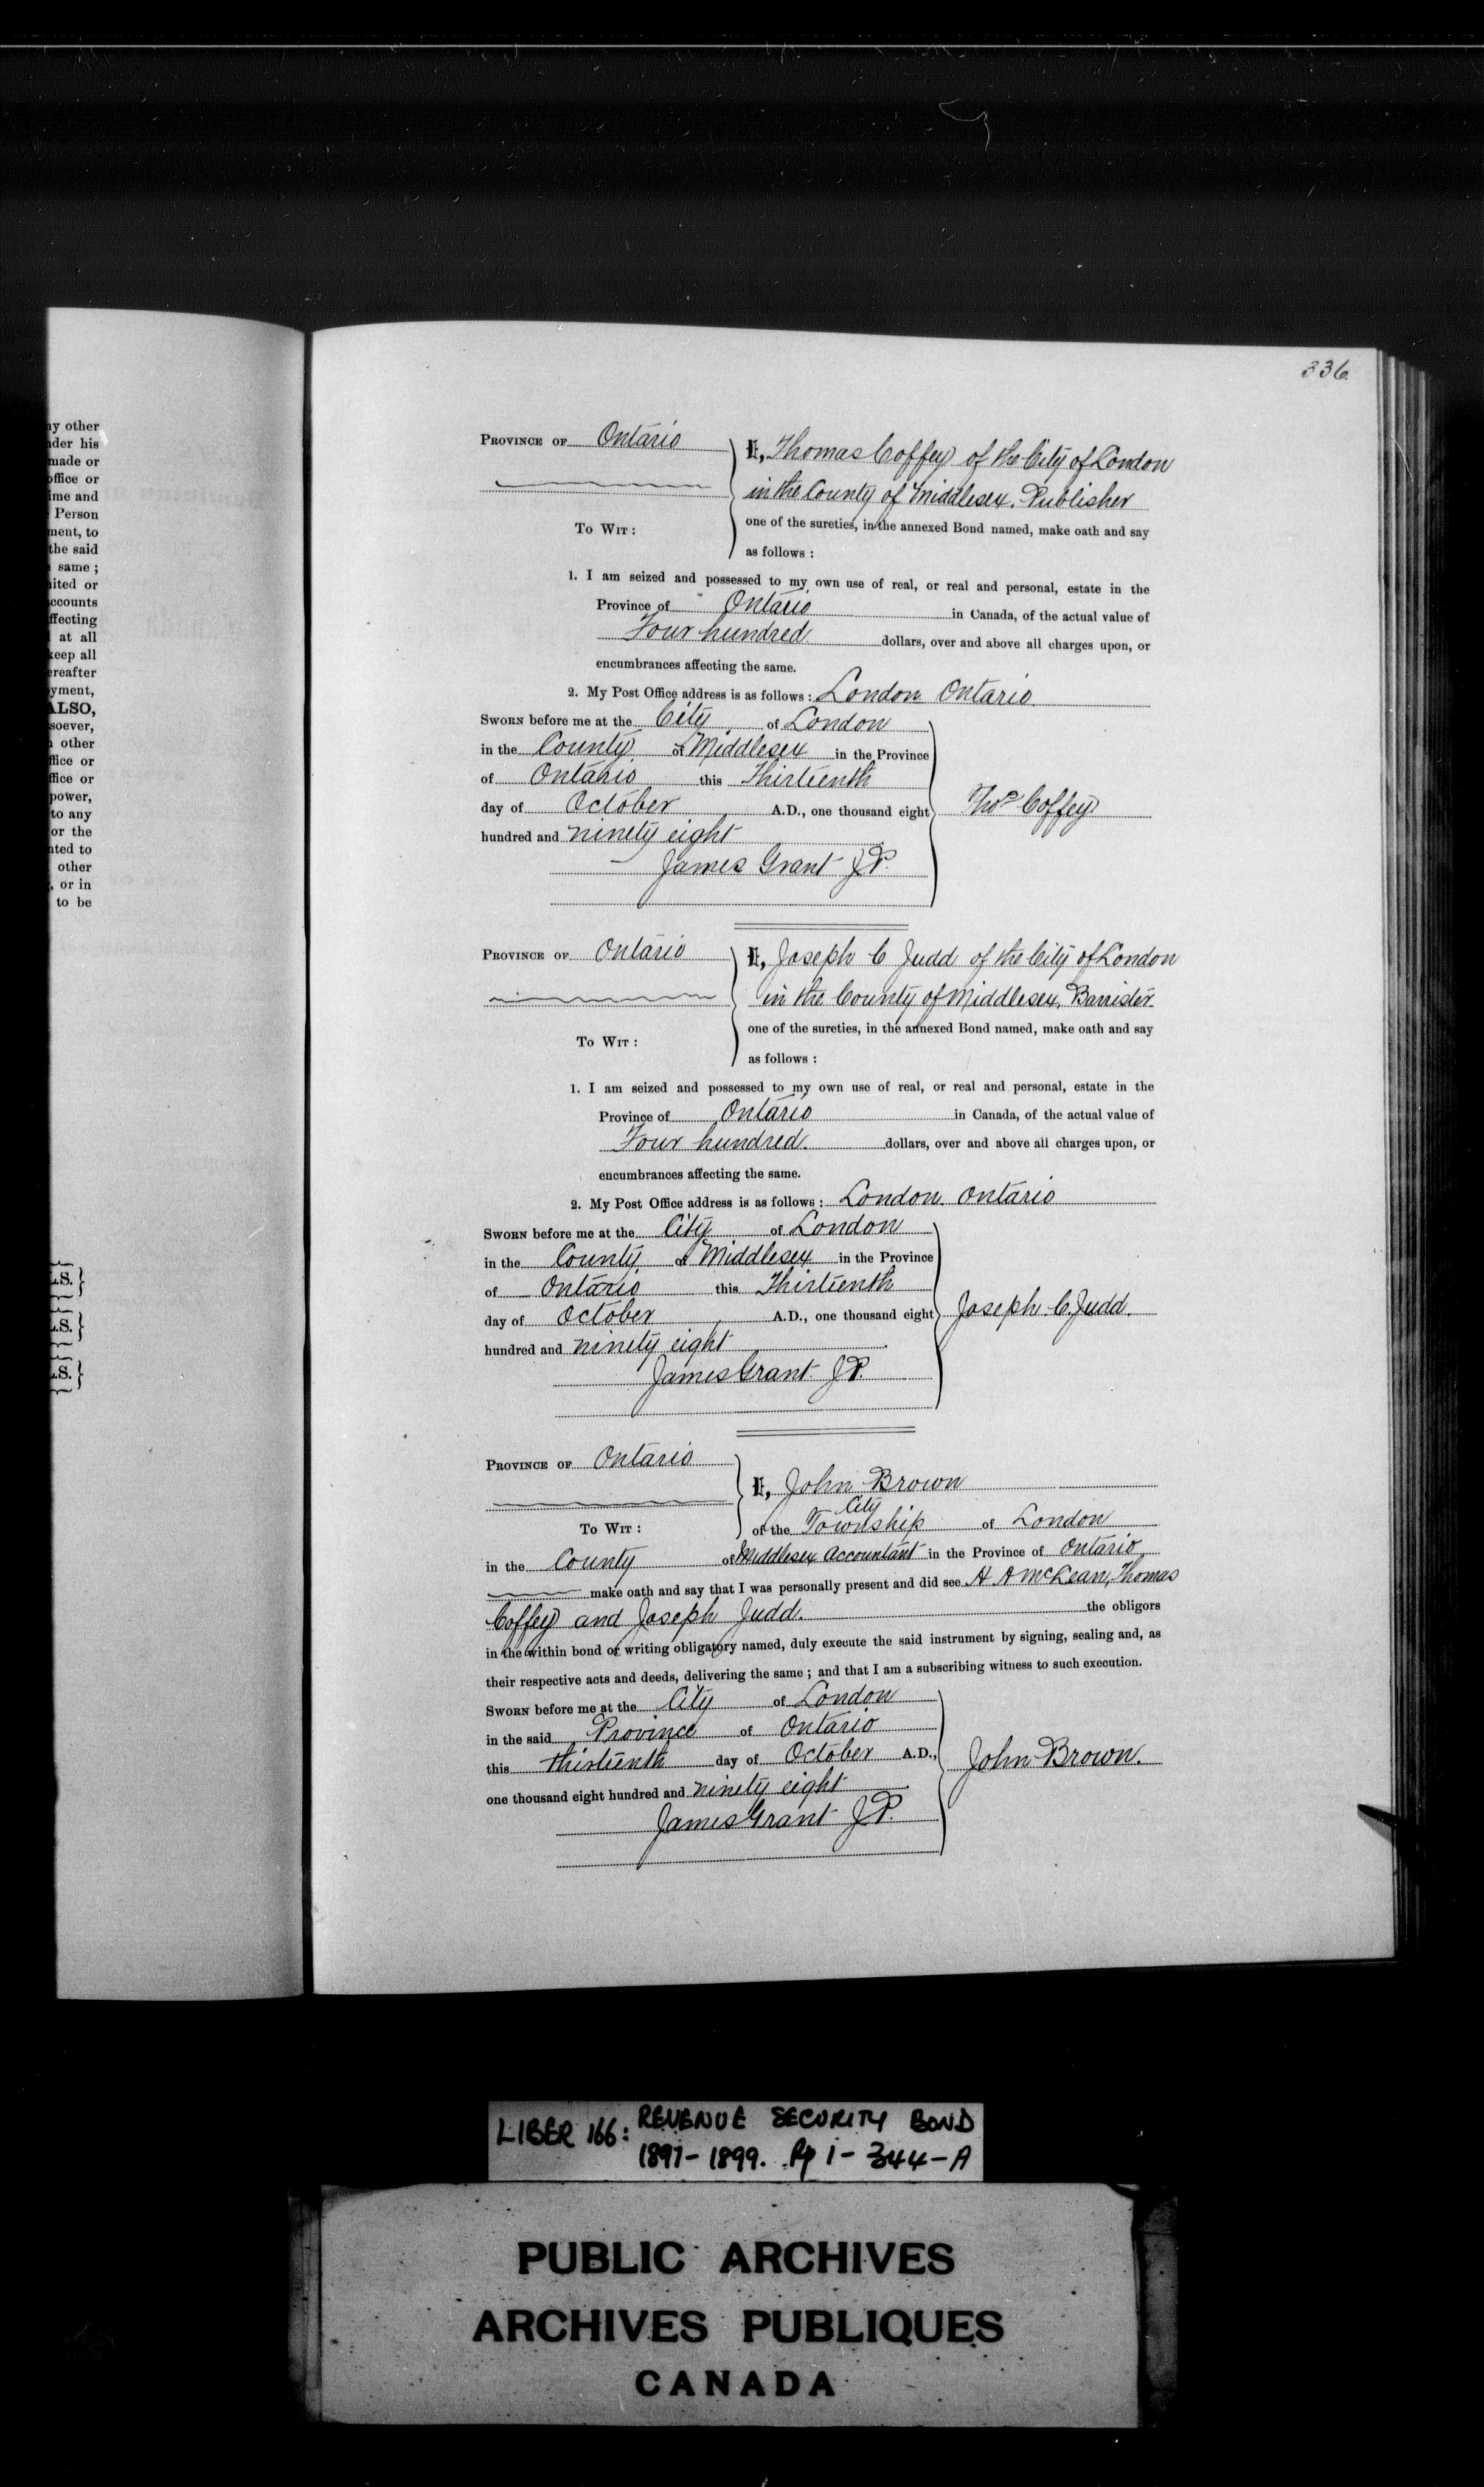 336
ny other
nder his
made or
office or
ime and
Person
ment, to
the said
same ;
nited or
ccounts
ffecting
at all
keep all
ereafter
yment,
ALSO,
soever,
other
ffice or
ffice or
power,
to any
or the
nted to
other
, or in
to be
L.S. }
L.S. }
L.S. }
PROVINCE OF Ontario
I, Thomas Coffey of the City of London
in the County of Middlesex, Publisher
TO WIT :
one of the sureties, in the annexed Bond named, make oath and say
as follows :
1. I am seized and possessed to my own use of real, or real and personal, estate in the
Province of Ontario in Canada, of the actual value of
Four hundred dollars, over and above all charges upon, or
encumbrances affecting the same.
2. My Post Office address is as follows : London Ontario.
SWORN before me at the City of London
in the County of Middlesex in the Province
of Ontario this Thirteenth
day of October A.D., one thousand eight
hundred and ninety eight
Thos Coffey
James Grant J.P.
PROVINCE OF Ontario
I, Joseph C Judd of the City of London
in the County of Middlesex, Barrister
TO WIT :
one of the sureties, in the annexed Bond named, make oath and say
as follows :
1. I am seized and possessed to my own use of real, or real and personal, estate in the
Province of Ontario in Canada, of the actual value of
Four hundred. dollars, over and above all charges upon, or
encumbrances affecting the same.
2. My Post Office address is as follows : London. Ontario
SWORN before me at the City of London
in the County of Middlesex in the Province
of Ontario this Thirteenth
day of October A.D., one thousand eight
hundred and ninety eight
Joseph C. Judd.
James Grant J.P.
PROVINCE OF Ontario
I, John Brown
City
TO WIT :
of the Township of London
in the County of Middlesex Accountant in the Province of Ontario
make oath and say that I was personally present and did see A A McKean, Thomas
Coffey and Joseph Judd. the obligors
in the within bond or writing obligatory named, duly execute the said instrument by signing, sealing and, as
their respective acts and deeds, delivering the same ; and that I am a subscribing witness to such execution.
SWORN before me at the City of London
in the said Province of Ontario
this thirteenth day of October A.D.,
one thousand eight hundred and ninety eight
John Brown.
James Grant J.P.
LIBER 166: REVENUE SECURITY BOND
1897-1899. Pp i - 344-A
PUBLIC ARCHIVES
ARCHIVES PUBLIQUES
CANADA